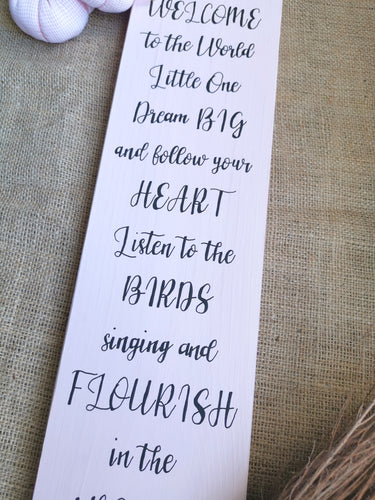 WELCOME
to the World
Little One
Dream BIG
and follow your
HEART
Listen to the
BIRDS
singing and
FLOURISH
in the